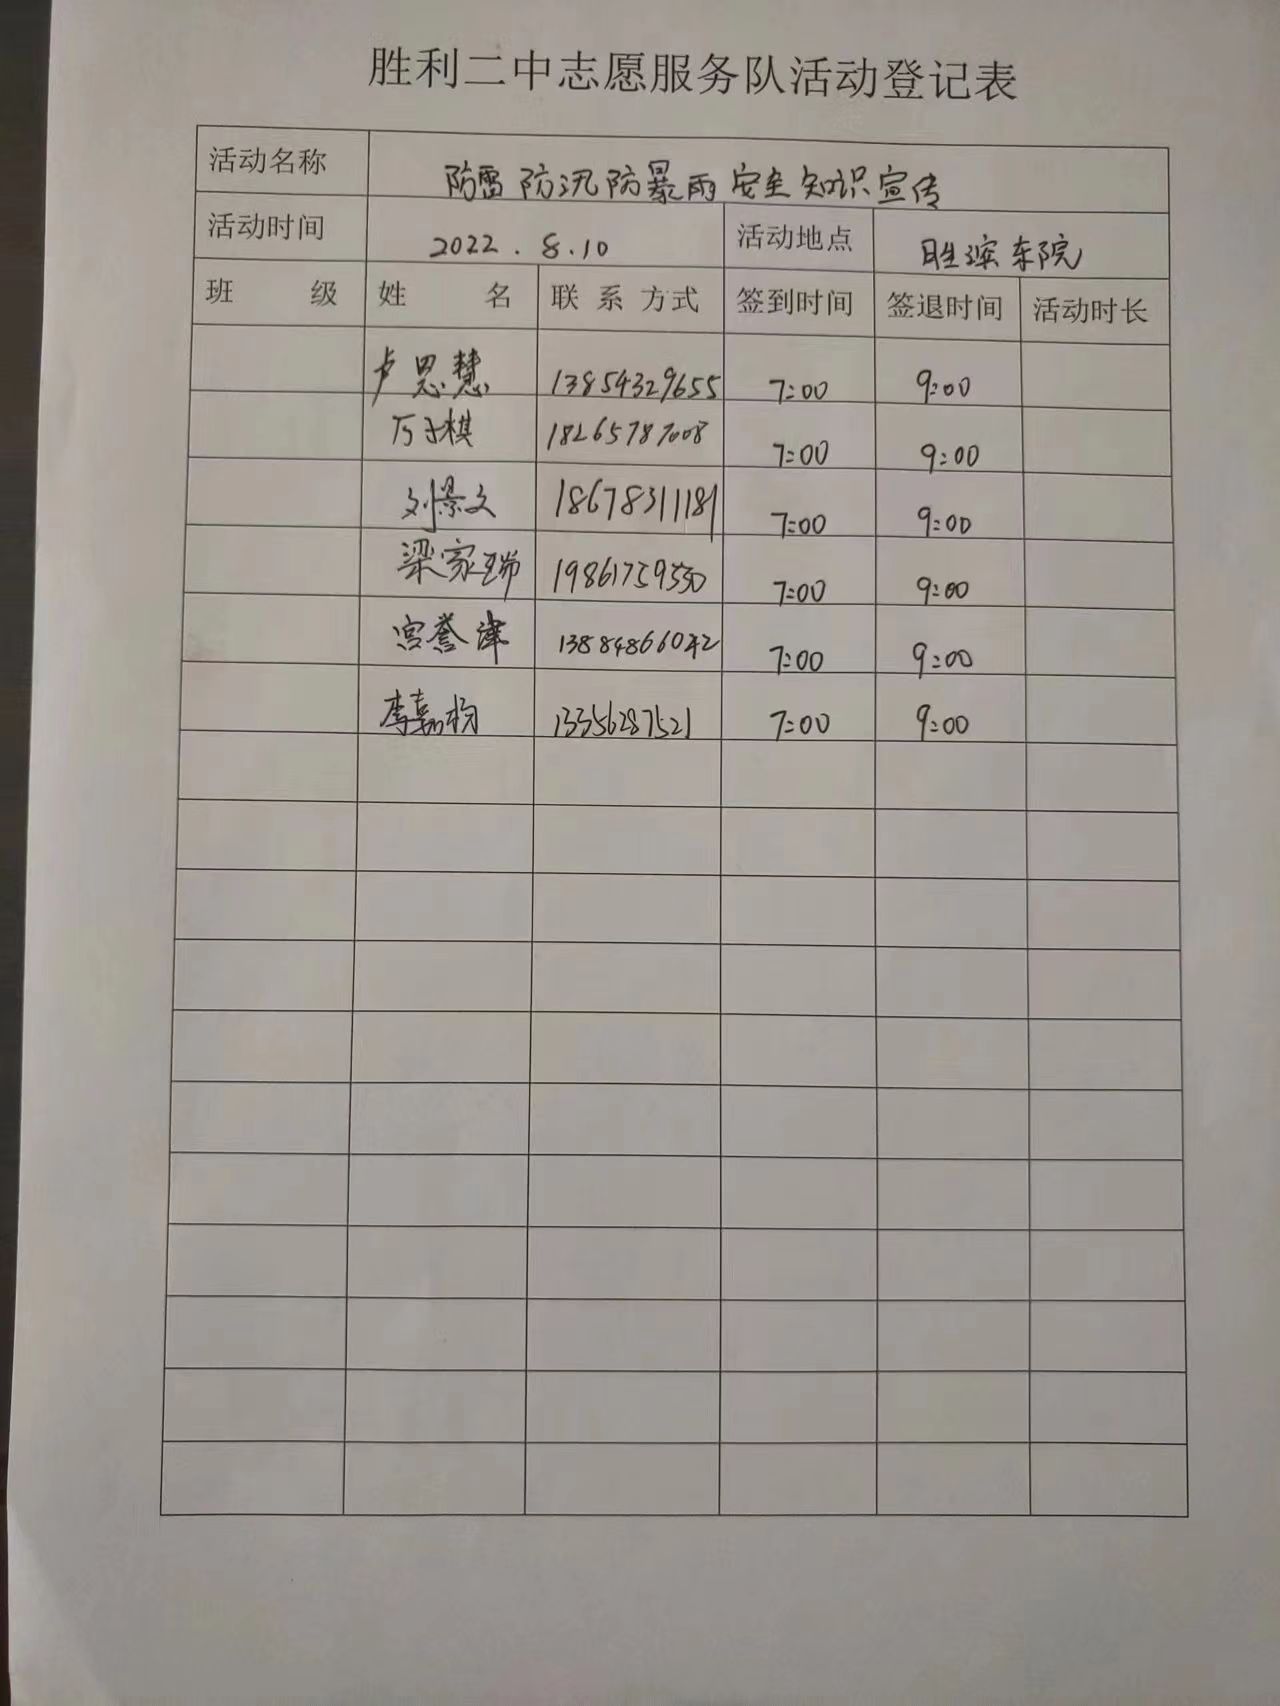 胜利二中志愿服务队活动登记表
活动名称 防雷防汛防暴雨安全知识宣传
活动时间 2022.8.10 活动地点 胜滨东院
班级 姓名 联系方式 签到时间 签退时间 活动时长
卢思慧 13854329655 7:00 9:00
万子棋 18265787008 7:00 9:00
刘景文 18678311181 7:00 9:00
梁家瑞 19861759550 7:00 9:00
宫誉津 13884866042 7:00 9:00
李嘉均 13356287521 7:00 9:00